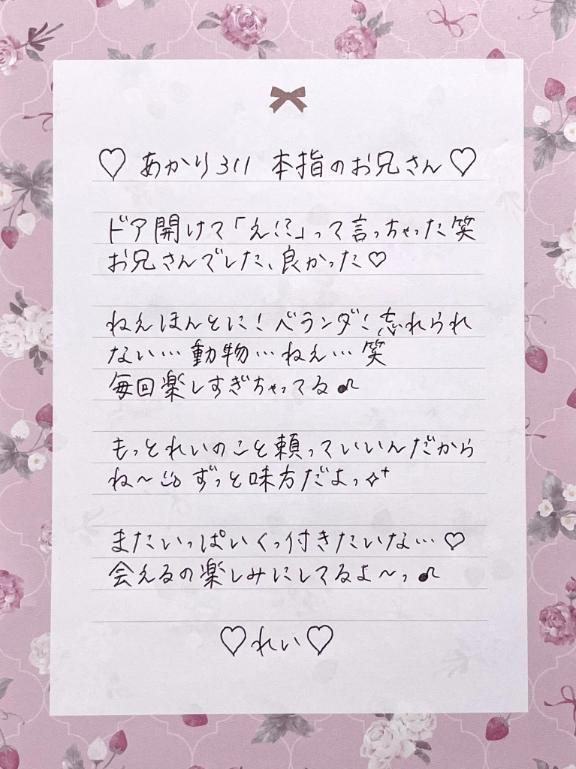 ♡ あかり311 本指のお兄さん ♡
ドア開けて「え!?」って言っちゃった笑
お兄さんでした、良かった♡
ねえほんとに!ベランダ!忘れられ
ない…動物…ねぇ…笑
毎回楽しすぎちゃってる♫
もっとれいのこと頼っていいんだから
ね〜 ずっと味方だよっ✧⁺
またいっぱいくっ付きたいな…♡
会えるの楽しみにしてるよ〜っ♫
♡れい♡